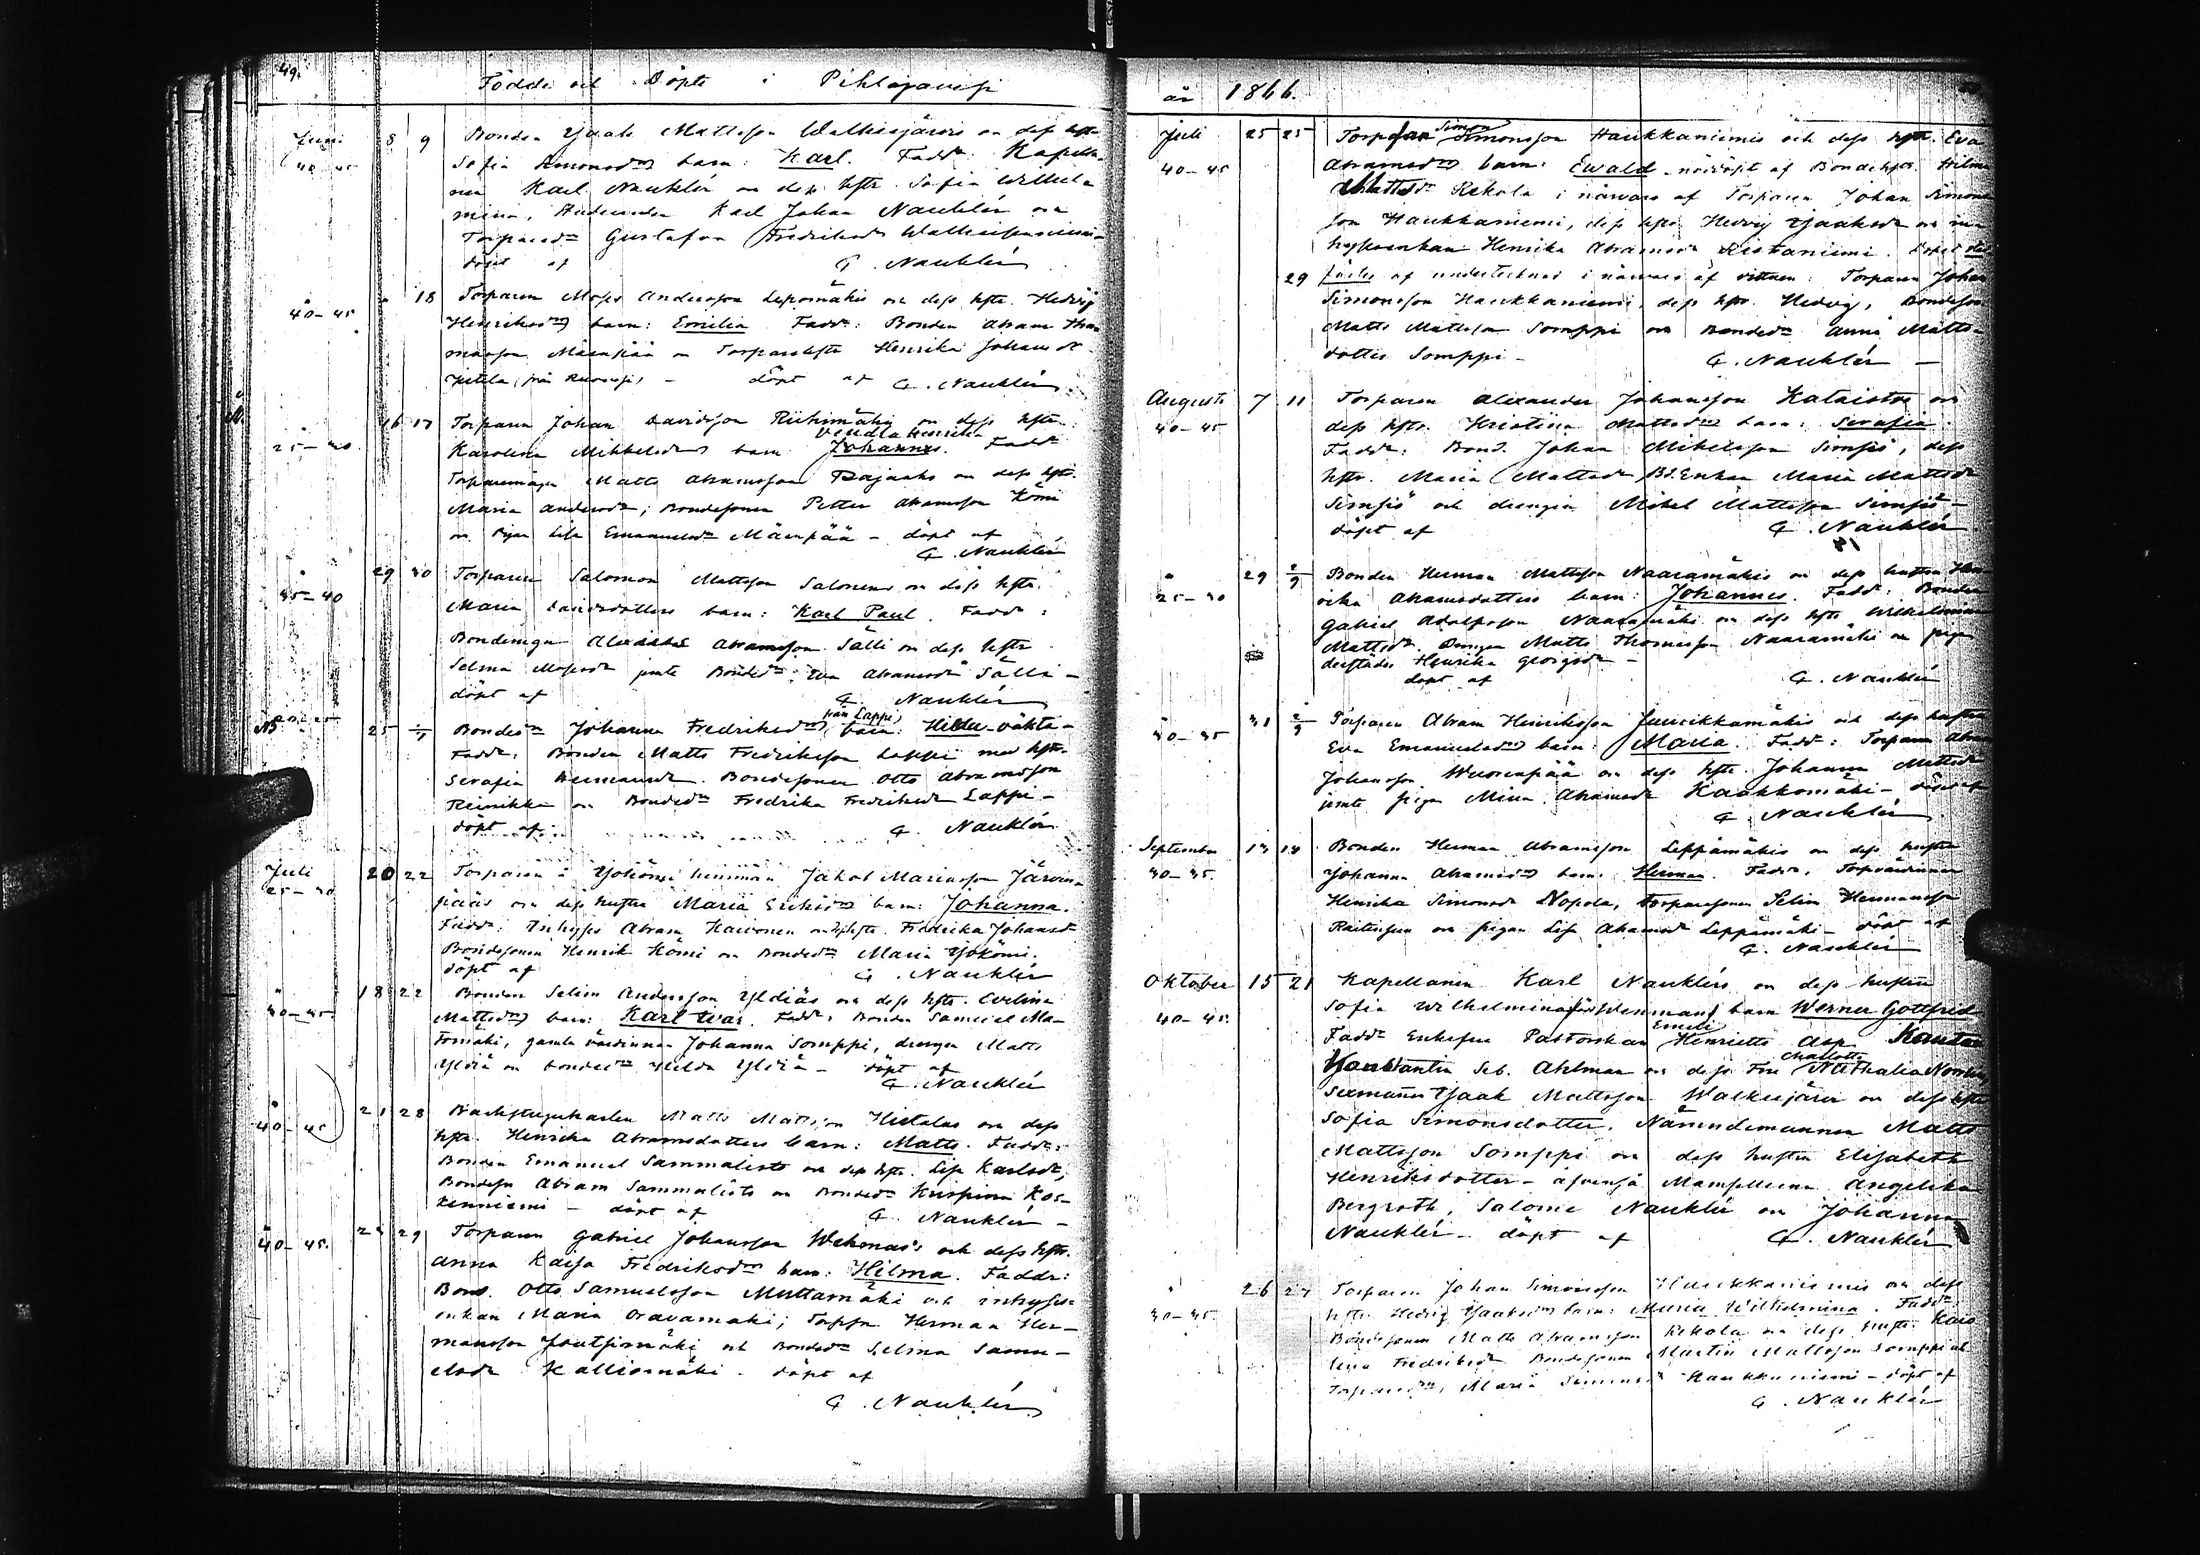 49.
Födde och Döpte i Pihlajavesi
Juni 8 9 Bonden Isaak Mattsson Walkeejärvis o. dess hstr
40–45 Sofia Simonsdrs barn: Karl. Faddr: Kapella-
nen Karl Nauklér o. dess hstr Sofia Wilhel-
mina, Studeranden Karl Johan Nauklér och
döpt af C. Nauklér
18 Torparen Moses Andersson Lepomäkis o. dess hstr. Hedvig
40–45 Henriksdrs barn: Emilia Faddr: Bonden Abram
Mäenpää o. Torparehstr Henrika Johansdr
döpt af C. Nauklér
16 17 Torparen Johan Davidsson Riihimäkis o. dess hstr
Vendla Henrika
25–30 Karolina Mikkelsdrs barn Johannes. Faddr
Torparemågen Matts Abramsson Rajaaho o. dess hstr.
Maria Andersdr, Bondesonen Petter Abramsson Kömi
o. Pigan Lisa Emanuelsdr Mäenpää – döpt af
C. Nauklér
29 30 Torparen Salomon Mattsson Salonens o. dess hstr.
35–40 Maria Davidsdotters barn: Karl Paul. Faddr:
Bondemågen Abramsson Sälli o. dess hstr
Selma Mosesdr jemte Bondedr; Eva Abramsdr Sälli –
döpt af C. Nauklér
från Lappi
25 1/7 Bondedr Johanna Fredriksdrs barn: Hilda oäkta –
Faddr: Bonden Matts Fredriksson Lappi med hstr.
Serafia Hermansdr. Bondesonen Otto Abramsson
Reinikka o. Bondedr Fredrika Fredriksdr Lappi –
döpt af C. Nauklér
Juli 20 22 Torparen å Ylökömi hemman Jakob Mariasson Järven-
25–30 pääs o. dess hustru Maria Eriksdrs barn: Johanna.
Faddr: Inhyses Abram Kaivonen o. dess hstr. Fredrika Johansdr
Bondesonen Henrik Kömi o. Bondedr Maria Ylökömi.
döpt af C. Nauklér
18 22 Bonden Selim Andersson Yldiäs o. dess hstr. Evelina
30–35 Mattsdrs barn: Karl Ivar. Faddr: Bonden Samuel Ma-
tomäki, gamla värdinnan Johanna Somppi, drengen Matts
Yldiä o. bondedr Hilda Yldiä – döpt af
C. Nauklér
21 28 Backstugukarlen Matts Mattsson Hietalas o. dess
40–45 hstr. Henrika Abramsdotters barn: Matts. Faddr:
Bonden Emanuel Sammalisto o. dess hstr. Lisa Karlsdr,
Bondesn Abram Sammalisto o. Bondedr Krispina Kos-
kenniemi – döpt af C. Nauklér –
25 29 Torparen Gabriel Johansson Wehmas's och dess hstr.
40–45. Anna Kaisa Fredriksdrs barn: Hilma. Faddr:
Bond. Otto Samuelsson Muttamäki och inhyses-
enkan Maria Oravamäki; Torpsn Herman Her-
mansson Joutsimäki och Bondedr Selma Samu-
elsdr Kalliomäki. döpt af
C. Nauklér
år 1866.
Simon
Juli 25 25 Torparen Simonsson Haukkaniemis och dess hstr. Eva
40–45 Abramsdrs barn: Ewald nöddöpt af Bondehstr. Hilma
Mattsdr Kekola i närvaro af Torparen Johan Simons-
son Haukkaniemi, dess hstr. Hedvig Isaaksdr och in-
hysesenkan Henrika Abramsdr Ristaniemi. Dopet
29 af undertecknad i närvaro af vittnen: Torparen Johan
Simonsson Haukkaniemi, dess hstr. Hedvig, Bondeson
Matts Mattsson Somppi och Bondedr Anna Matts-
dotter Somppi – C. Nauklér –
Augusti 7 11 Torparen Alexander Johansson Kataistos o.
40–45 dess hstr. Kristina Mattsdrs barn: Serafia.
Faddr: Bond. Johan Mikelsson Simsiö, dess
hstr. Maria Mattsdr, Bd.Enkan Maria Mattsdr
Simsiö och drengen Mikel Mattsson Simsiö –
döpt af C. Nauklér
29 2/9 Bonden Herman Mattsson Naaramäkis o. dess hustru Hen-
25–30 rika Abramsdotters barn: Johannes. Faddr: Bonden
Gabriel Adolfsson Naaramäki o. dess hstr Wilhelmina
Mattsdr. Drengen Matts Thomasson Naaramäki o. pigan
derstädes Henrika Georgsdr –
döpt af C. Nauklér
31 2/9 Torparen Abram Henriksson Junsikkamäkis och dess hustru
30–35 Eva Emanuelsdrs barn: Maria. Faddr: Torparen Abram
Johansson Wuorenpää o. dess hstr. Johanna Mattsdr
jemte pigan Mina Abramsdr Kaakkomäki – döpt af
C. Nauklér
September 13 14 Bonden Herman Abramsson Leppämäkis o. dess hustru
30–35 Johanna Abramsdrs barn: Herman. Faddr: Torpvärdinnan
Henrika Simonsdr Nopola, Torparesonen Selim Hermansson
o. pigan Lisa Abramsdr Leppämäki – döpt af
C. Nauklér
Oktober 15 21 Kapellanen Karl Nauklérs o. dess hustru
40–45. Sofia Wilhelmina född Wenmans barn Werner Gottfrid
Emeli
Faddr Enkefru Pastorskan Henrietta Asp Kantor
Charlotta
Konstantin Seb. Ahlman o. dess Fru Nathalia
Sexmannen Isaak Mattsson Walkeejärvi o. dess hstr
Sofia Simonsdotter, Nämndemannen Matts
Mattsson Somppi o. dess hustru Elisabeth
Henriksdotter – äfvenså Mamsellerna Angelika
Bergroth, Salome Nauklér o. Johanna
Nauklér – döpt af C. Nauklér
26 27 Torparen Johan Simonsson Haukkaniemis o. dess
30–35 hstr. Hedvig Isaaksdrs barn: Maria Wilhelmina. Faddr:
Bondesonen Matts Abramsson Kekola o. dess hustr. Karo-
lina Fredriksdr Bondesonen Martin Mattsson Somppi och
Torparedr, Maria Simonsdr Haukkaniemi – döpt af
C. Nauklér